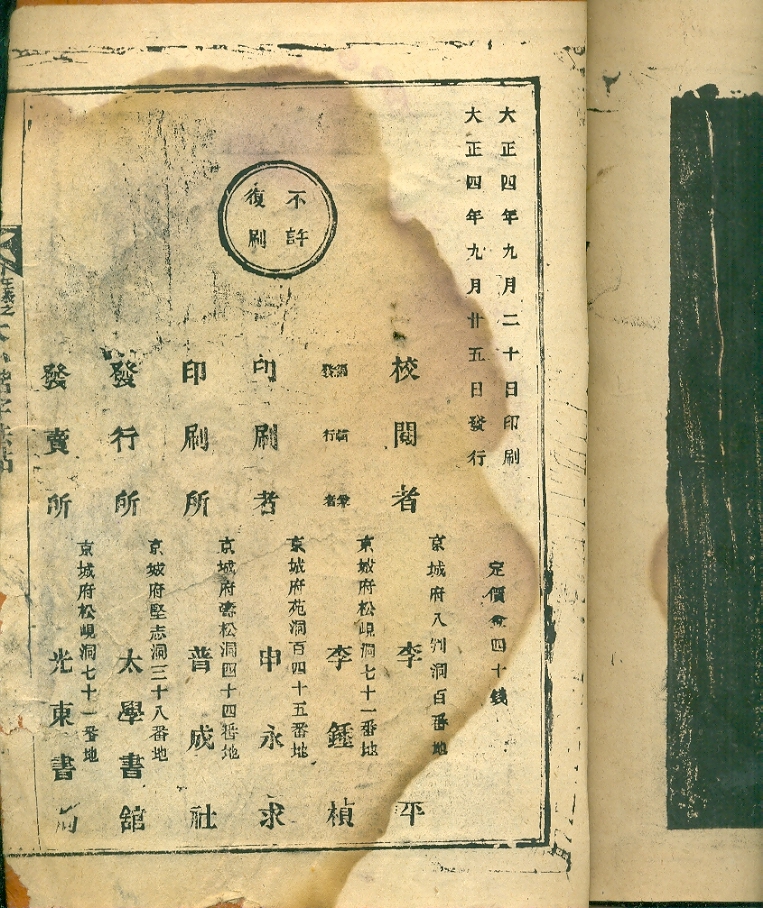 大正四年九月二十日印刷
大正四年九月廿五日發行
定價金四十錢
不許
復刷
校閱者
京城府八判洞百番地
李平
發行者
京城府松峴洞七十一番地
李鍾楨
印刷者
京城府苑洞百四十五番地
申永求
印刷所
京城府松洞四十四番地
普成社
發行所
京城府堅志洞三十八番地
太學書館
發賣所
京城府松峴洞七十一番地
光東書局